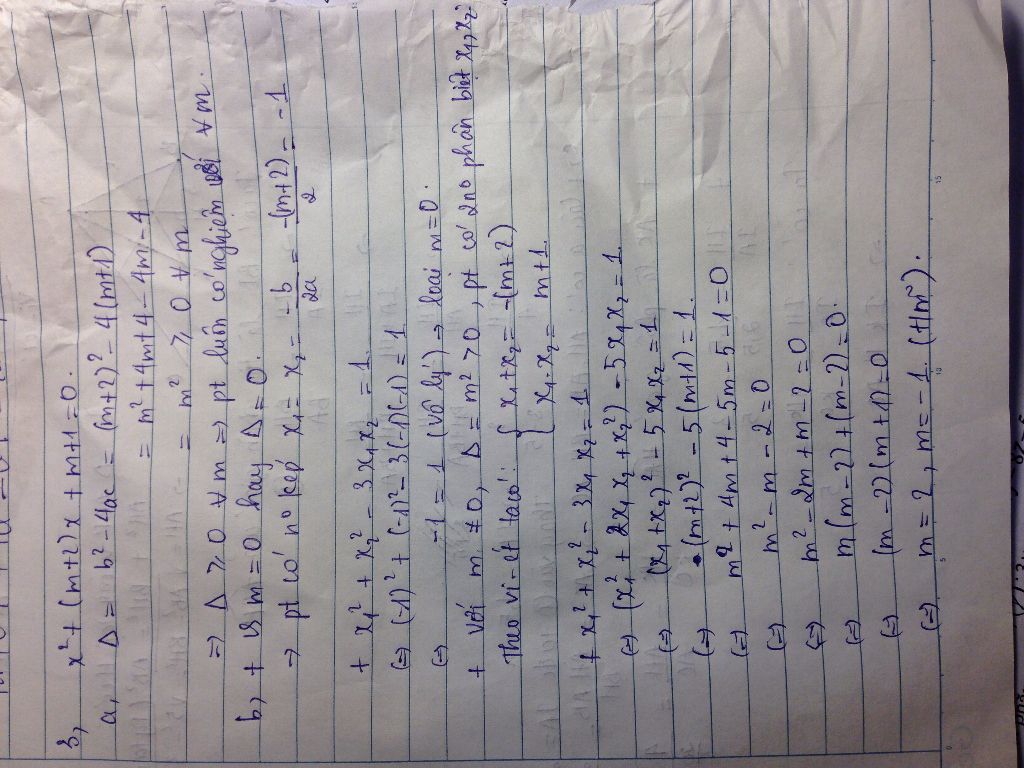 3, x² + (m+2)x + m+1 = 0.
a, Δ = b² - 4ac = (m+2)² - 4(m+1)
= m² + 4m + 4 - 4m - 4
= m² ⩾ 0 ∀ m
=> Δ ⩾ 0 ∀ m => pt luôn có nghiệm với ∀ m.
b, + Với m = 0 hay Δ = 0.
→ pt có n₀ kép x₁ = x₂ = -b/2a = -(m+2)/2 = -1
+ x₁² + x₂² - 3x₁x₂ = 1
(=) (-1)² + (-1)² - 3(-1)(-1) = 1
(=) -1 = 1 (vô lý) → loại m = 0.
+ Với m ≠ 0, Δ = m² > 0, pt có 2 n₀ phân biệt x₁, x₂
Theo vi-ét ta có: { x₁ + x₂ = -(m+2)
x₁.x₂ = m+1
+ x₁² + x₂² - 3x₁x₂ = 1
(=) (x₁² + 2x₁x₂ + x₂²) - 5x₁x₂ = 1
(=) (x₁+x₂)² - 5x₁x₂ = 1
(=) (m+2)² - 5(m+1) = 1.
(=) m² + 4m + 4 - 5m - 5 - 1 = 0
(=) m² - m - 2 = 0
(=) m² - 2m + m - 2 = 0
(=) m(m-2) + (m-2) = 0.
(=) (m-2)(m+1) = 0
(=) m = 2, m = -1 (t/m).